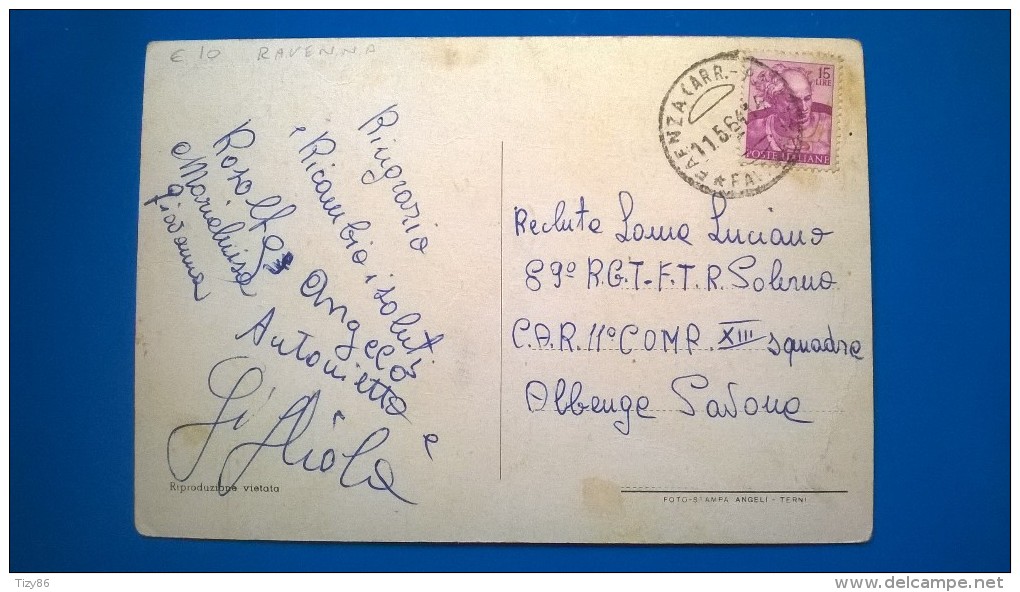 € 10 RAVENNA
FAENZA (ARR.-
11.5.64
15
LIRE
POSTE ITALIANE
Ringrazio
e Ricambio i saluti
Angelo
Antonietta e
Marialuisa
giovanna
Recluta Lama Luciano
89° R.G.T-F.T.R. Solerno
C.A.R. 11° COMP. XIII squadra
Albenga Savona
Riproduzione vietata
FOTO-STAMPA ANGELI - TERNI
Tizy86
www.delcampe.net